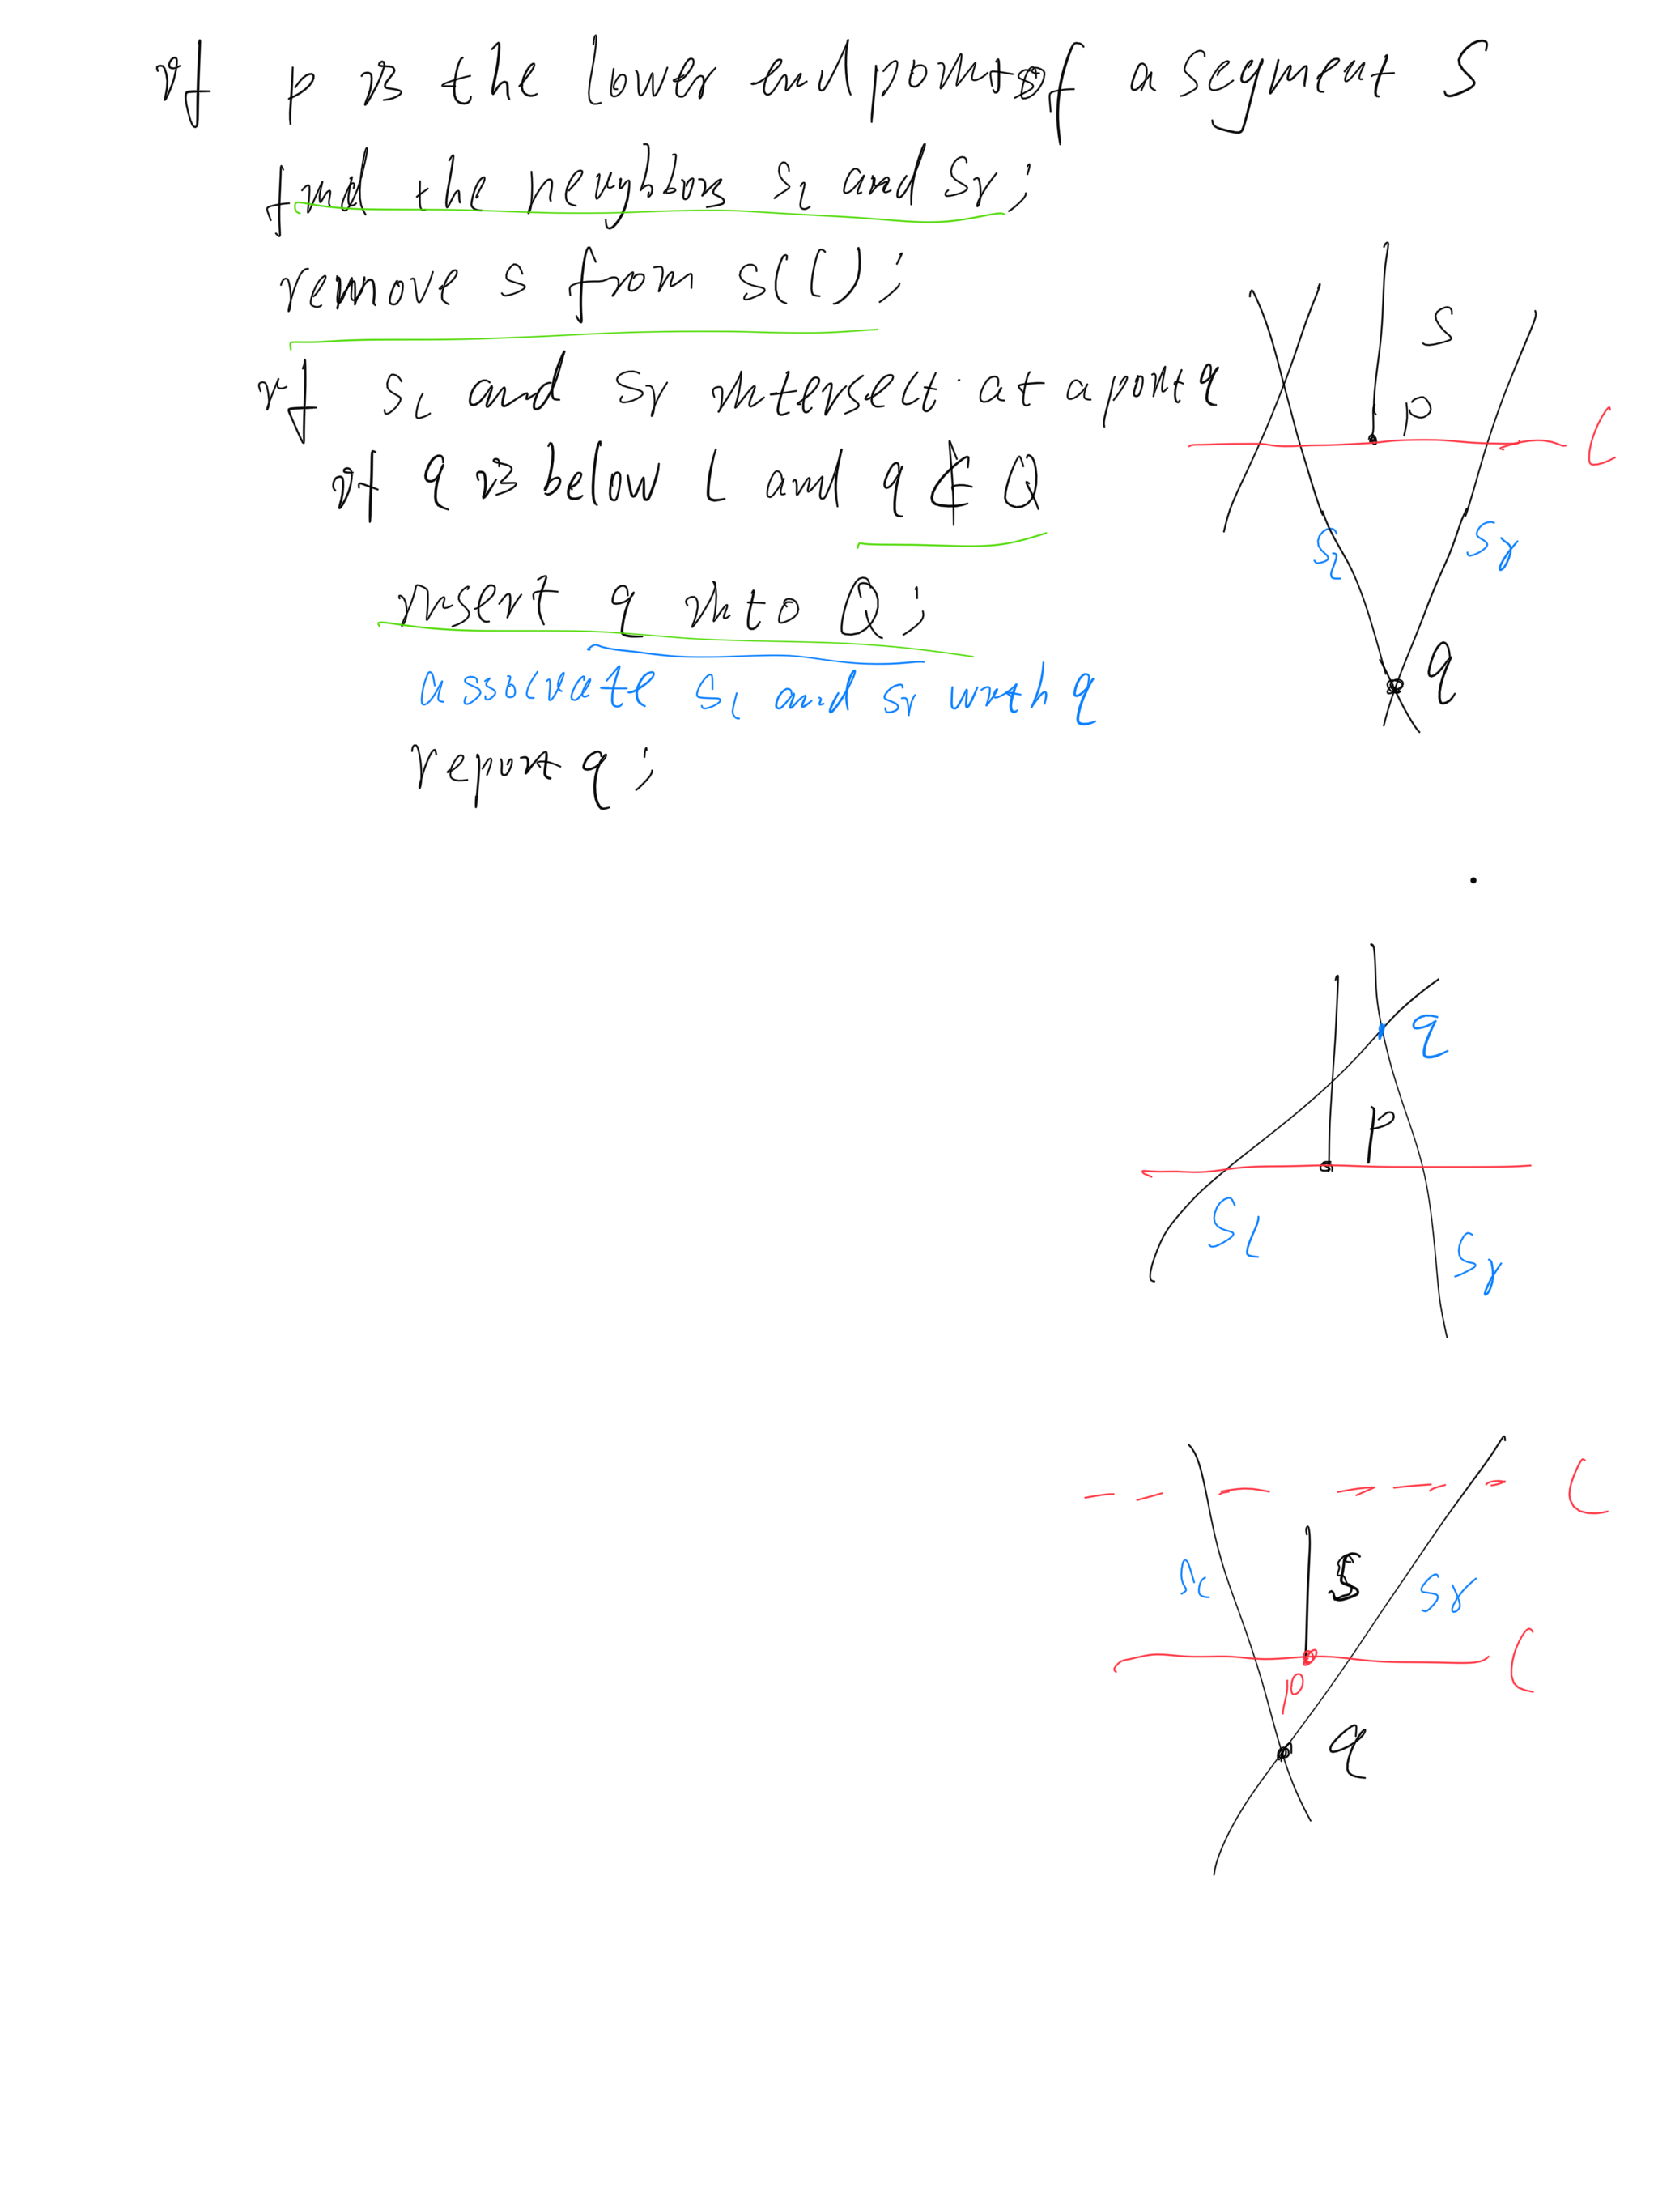 if p is the lower endpoint of a segment S
find the neighbors sl and sr;
remove s from s(l);
if sl and sr intersect at a point q
if q is below l and q ∉ Q
insert q into Q;
associate sl and sr with q
report q;
s
p
l
sl
sr
q
q
p
sl
sr
l
sl
s
sr
l
p
q